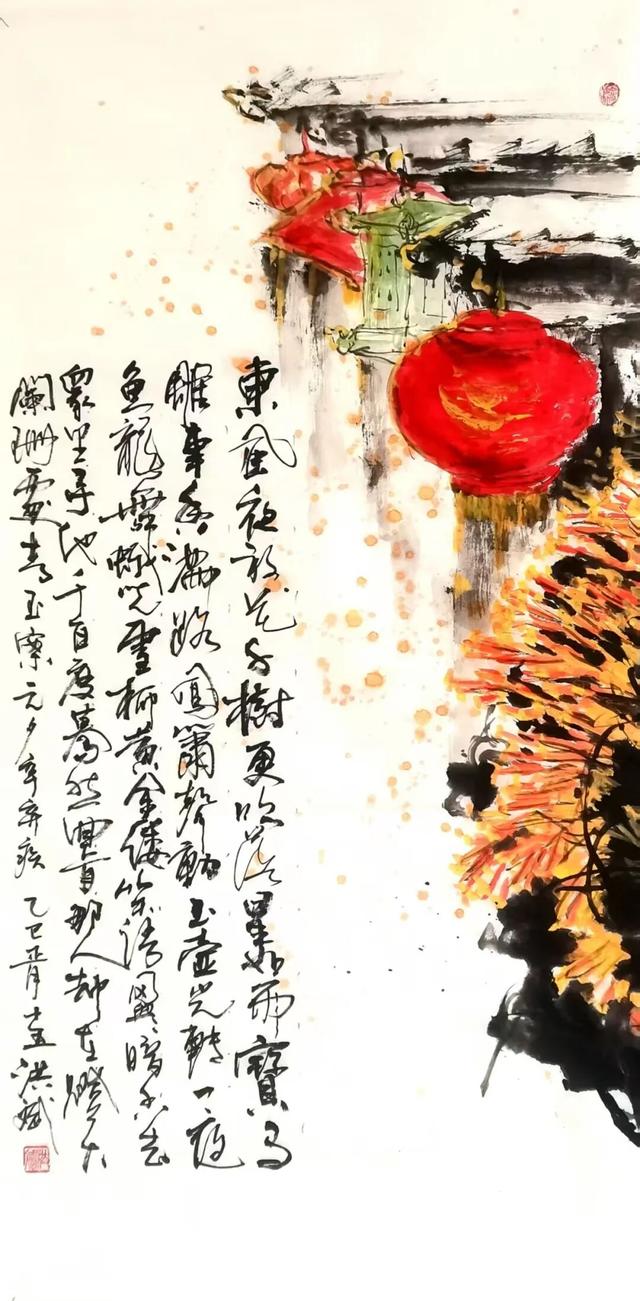 東風夜放花千樹更吹落星如雨寶馬
雕車香滿路鳳簫聲動玉壺光轉一夜
魚龍舞蛾兒雪柳黄金縷笑語盈盈暗香去
眾里尋他千百度驀然回首那人却在燈火
闌珊處青玉案元夕辛弃疾乙巳正月十五洪斌